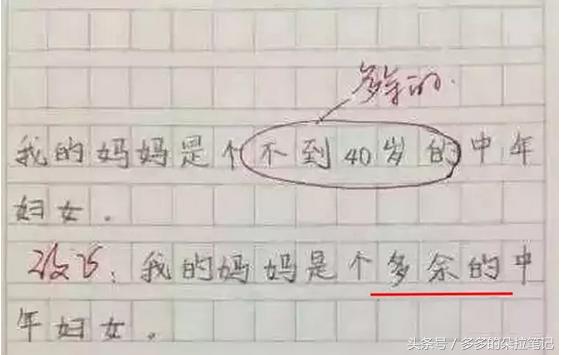 多余的.
我的妈妈是个不到40岁的中年
妇女.
改正:我的妈妈是个多余的中
年妇女.
头条号/多多的朵拉笔记